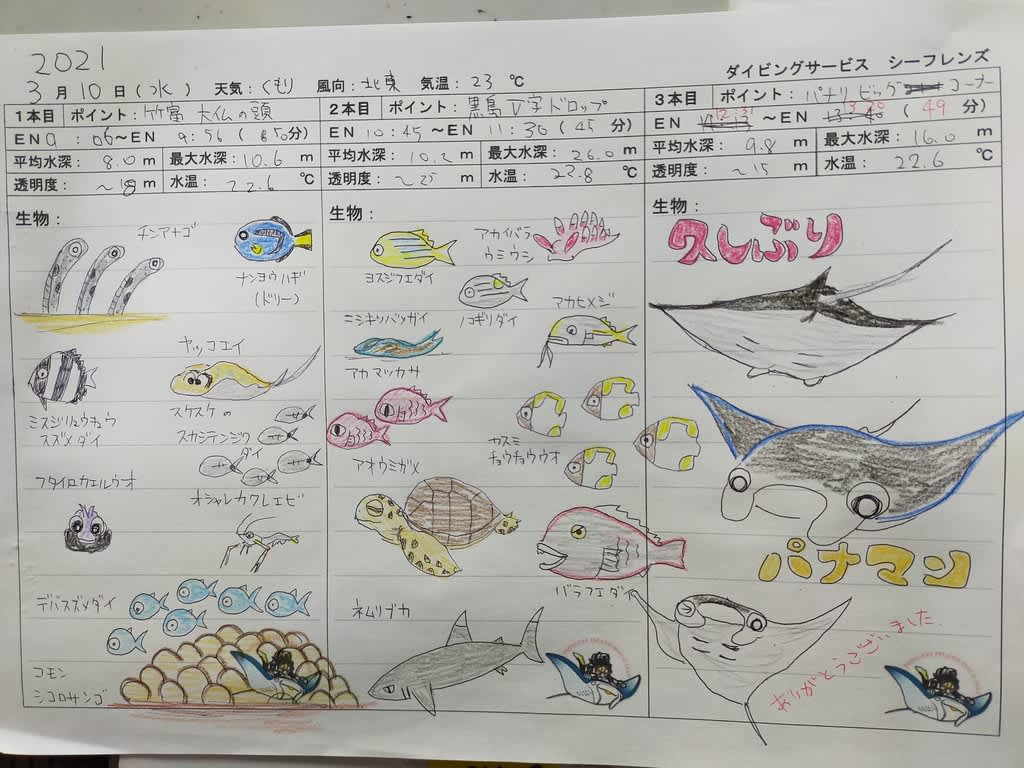 2021
ダイビングサービス シーフレンズ
3月10日(水) 天気:くもり 風向:北東 気温:23℃
1本目 ポイント:竹富 大仏の頭
EN 9:06~EN 9:56(50分)
平均水深:8.0m 最大水深:10.6m
透明度:~18m 水温:22.6℃
生物:
チンアナゴ
ナンヨウハギ
(ドリー)
ヤッコエイ
ミスジリュウキュウ
スズメダイ
スケスケの
スカシテンジク
ダイ
フタイロカエルウオ
オシャレカクレエビ
デバスズメダイ
コモン
シコロサンゴ
2本目 ポイント:黒島 V字ドロップ
EN 10:45~EN 11:30(45分)
平均水深:10.2m 最大水深:26.0m
透明度:~25m 水温:22.8℃
生物:
ヨスジフエダイ
アカイバラ
ウミウシ
ノコギリダイ
アカヒメジ
ニシキツバメガイ
アカマツカサ
カスミ
チョウチョウウオ
アオウミガメ
バラフエダイ
ネムリブカ
3本目 ポイント:パナリ ビッグコーナー
EN 12:31~EN 13:20(49分)
平均水深:9.8m 最大水深:16.0m
透明度:~15m 水温:22.6℃
生物:
久しぶり
パナマン
ありがとうございました